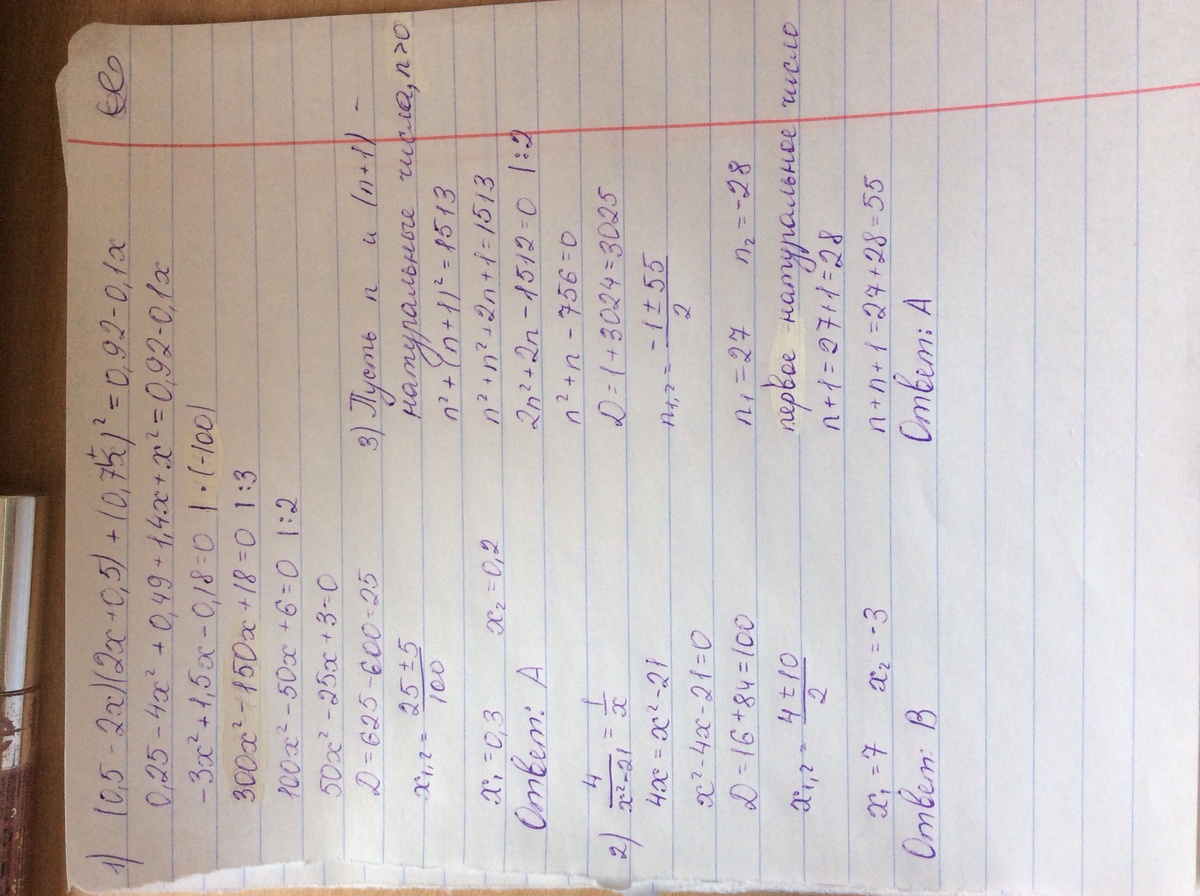 1) (0,5 - 2x)(2x + 0,5) + (0,7+x)² = 0,92 - 0,1x
0,25 - 4x² + 0,49 + 1,4x + x² = 0,92 - 0,1x
-3x² + 1,5x - 0,18 = 0 | · (-100)
300x² - 150x + 18 = 0 | :3
100x² - 50x + 6 = 0 | :2
50x² - 25x + 3 = 0
D = 625 - 600 = 25
x₁,₂ = (25 ± 5)/100
x₁ = 0,3 x₂ = 0,2
Ответ: А
2) 4/(x² - 21) = 1/x
4x = x² - 21
x² - 4x - 21 = 0
D = 16 + 84 = 100
x₁,₂ = (4 ± 10)/2
x₁ = 7 x₂ = -3
Ответ: В
3) Пусть n и (n+1) -
натуральные числа, n>0
n² + (n+1)² = 1513
n² + n² + 2n + 1 = 1513
2n² + 2n - 1512 = 0 | :2
n² + n - 756 = 0
D = 1 + 3024 = 3025
n₁,₂ = (-1 ± 55)/2
n₁ = 27 n₂ = -28
первое натуральное число
n + 1 = 27 + 1 = 28
n + n + 1 = 27 + 28 = 55
Ответ: А